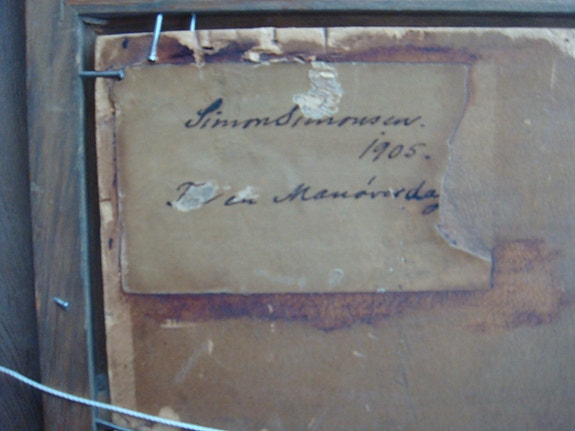 Simon Simonsen.
1905.
en Manöverdag